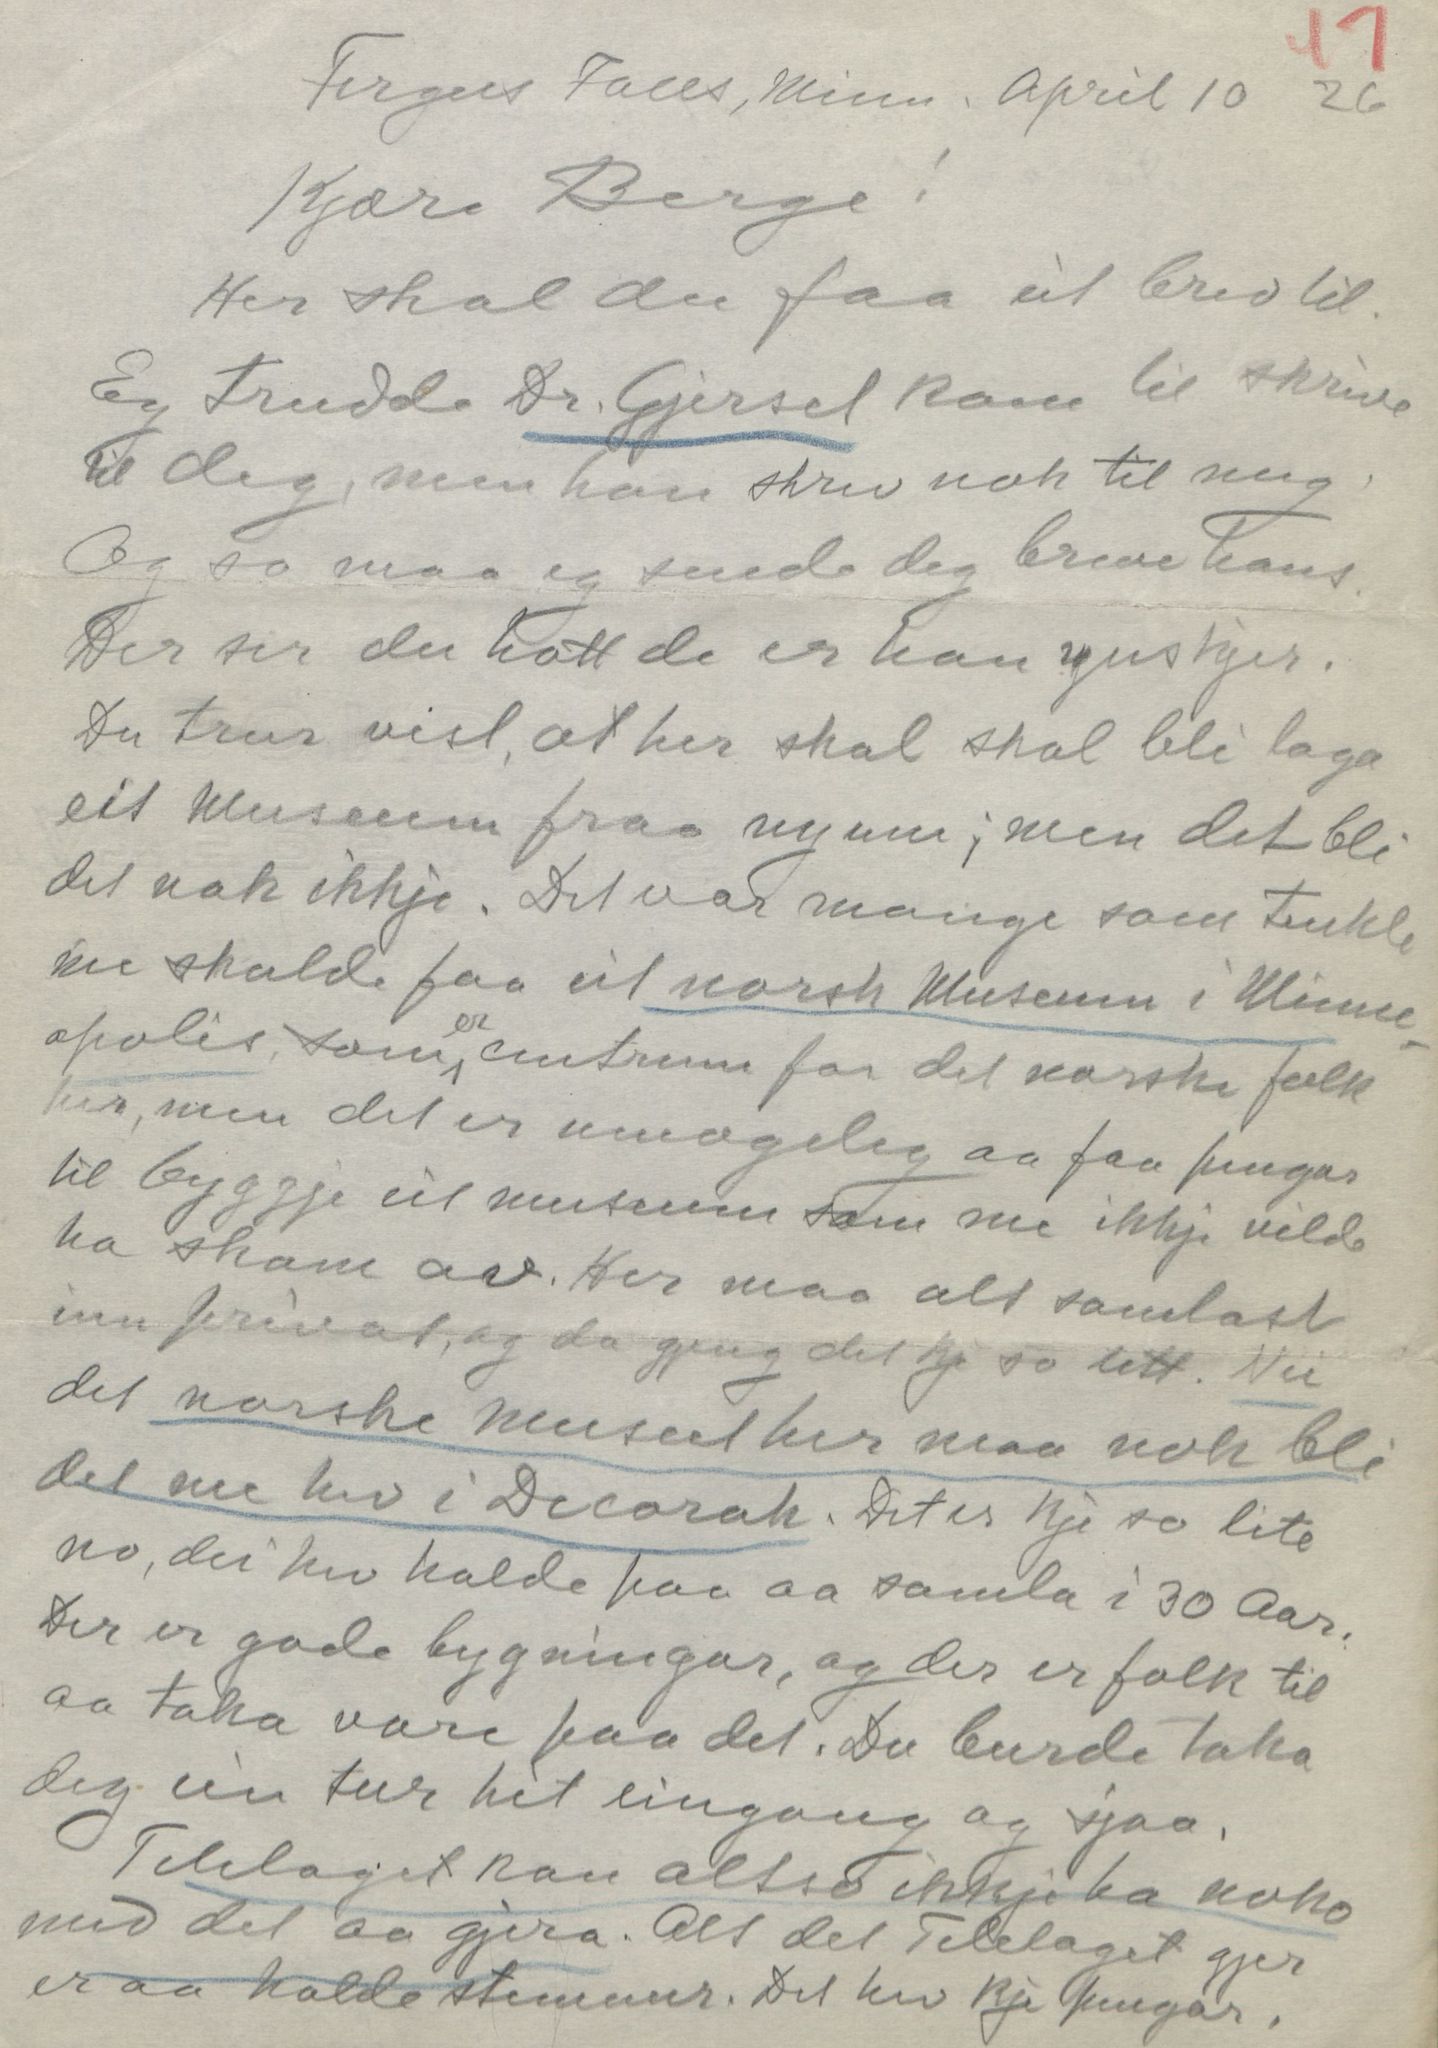 17
Fergus Falls, Minn. April 10 26
Kjære Berge!
Her skal du faa eit brev til.
Eg trudde Dr. Gjerset kom til skrive
til deg, men han skrev nok til meg.
Og so maa eg sende deg breve hans.
Der ser du kott de er han ynskjer.
Du trur vist, at her skal skal bli laga
eit Museum fraa nyom; men det bli
det nok ikkje. Det var mange som tenkte
me skulde faa eit norsk Museum i Minne-
apolis, som er centrum for det norske folk
her, men det er umogeleg aa faa pengar
til byggje eit museum som me ikkje vilde
ha skam av. Her maa alt samlast
inn privat, og da gjeng det kje so lett. Nei
det norske museet her maa nok bli
det me hev i Decorah. Det er kje so lite
no, dei hev halde paa aa samla i 30 Aar.
Der er gode bygningar, og der er folk til
aa taka vare paa det. Du burde taka
deg ein tur hit eingong og sjaa.
Telelaget kan altso ikkje ha noko
med det aa gjera. Alt det Telelaget gjer
er aa halde stemnur. Det hev kje pengar.